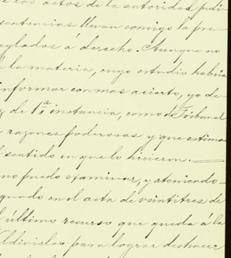 los actos de la autoridad judi
sentencias llevan consigo la pre
arreglados á derecho. Aunque no
la materia, cuyo estudio habria
informar con mas acierto, yo de
de 1ª instancia, como de Tribunal
razones poderosas y que estima
sentido en que lo hicieron.
no puedo examinar, y atenien do
en el acta de veintitres de
último recurso que queda á la
para lograr deshacer